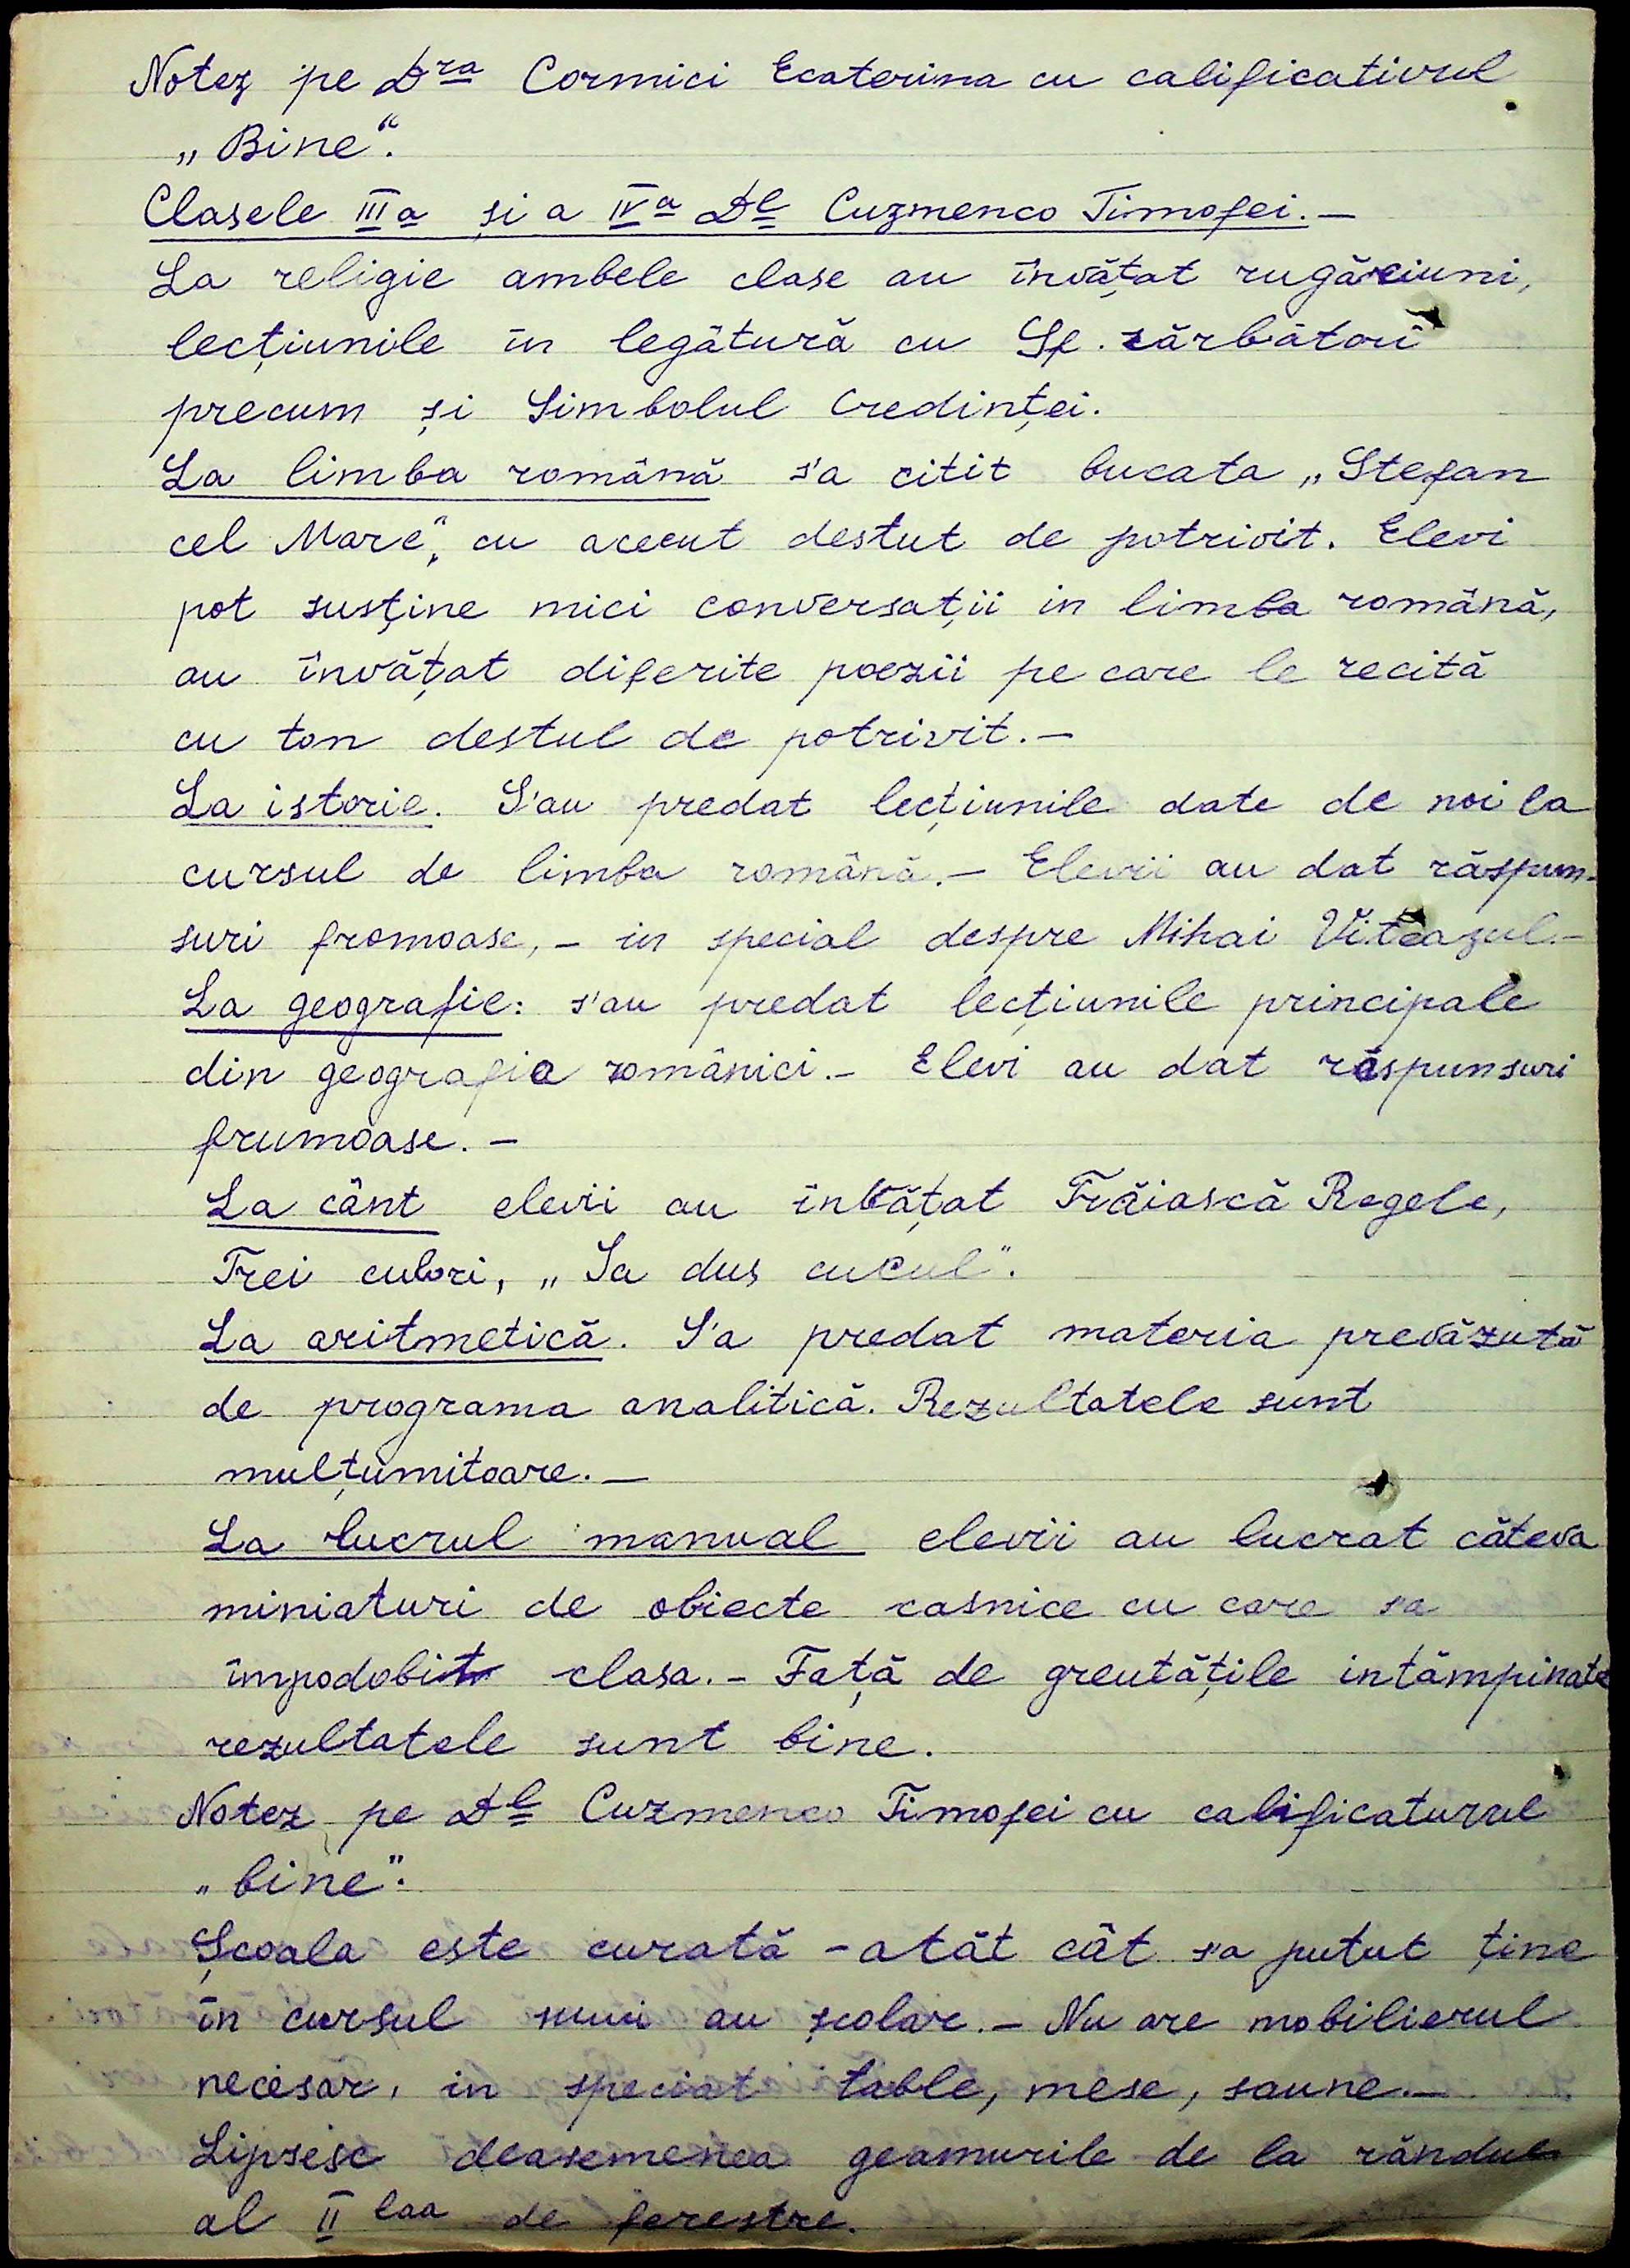 Notez pe Dra Cormici Ecaterina cu calificativul
„Bine".
Clasele III a și a IV a Dl Cuzmenco Timofei.-
La religie ambele clase au învățat rugăciuni,
lecțiunile în legătură cu Sf. sărbători
precum și Simbolul Credinței.
La limba română s'a citit bucata „Stefan
cel Mare", cu accent destut de potrivit. Elevi
pot susține mici conversații in limba română,
au învățat diferite poezii pe care le recită
cu ton destul de potrivit.-
La istorie. S'au predat lecțiunile date de noi la
cursul de limba română.- Elevii au dat răspun-
suri fromoase,- in special despre Mihai Viteazul.-
La geografie: s'au predat lecțiunile principale
din geografia românici.- Elevi au dat răspunsuri
frumoase.-
La cânt elevii au înbățat Trăiască Regele,
Trei culori, „Sa dus cucul".
La aritmetică. S'a predat materia prevăzută
de programa analitică. Rezultatele sunt
mulțumitoare.-
La lucrul manual elevii au lucrat câteva
miniaturi de obiecte casnice cu care s'a
împodobit clasa.- Față de greutățile intâmpinate
rezultatele sunt bine.
Notez pe Dl Cuzmenco Timofei cu calificaturul
„bine".
Școala este curată - atăt cât s'a putut ține
în cursul unui an școlar.- Nu are mobilierul
necesar, in special table, mese, saune.-
Lipsesc deasemenea geamurile de la rândul
al II lea de ferestre.